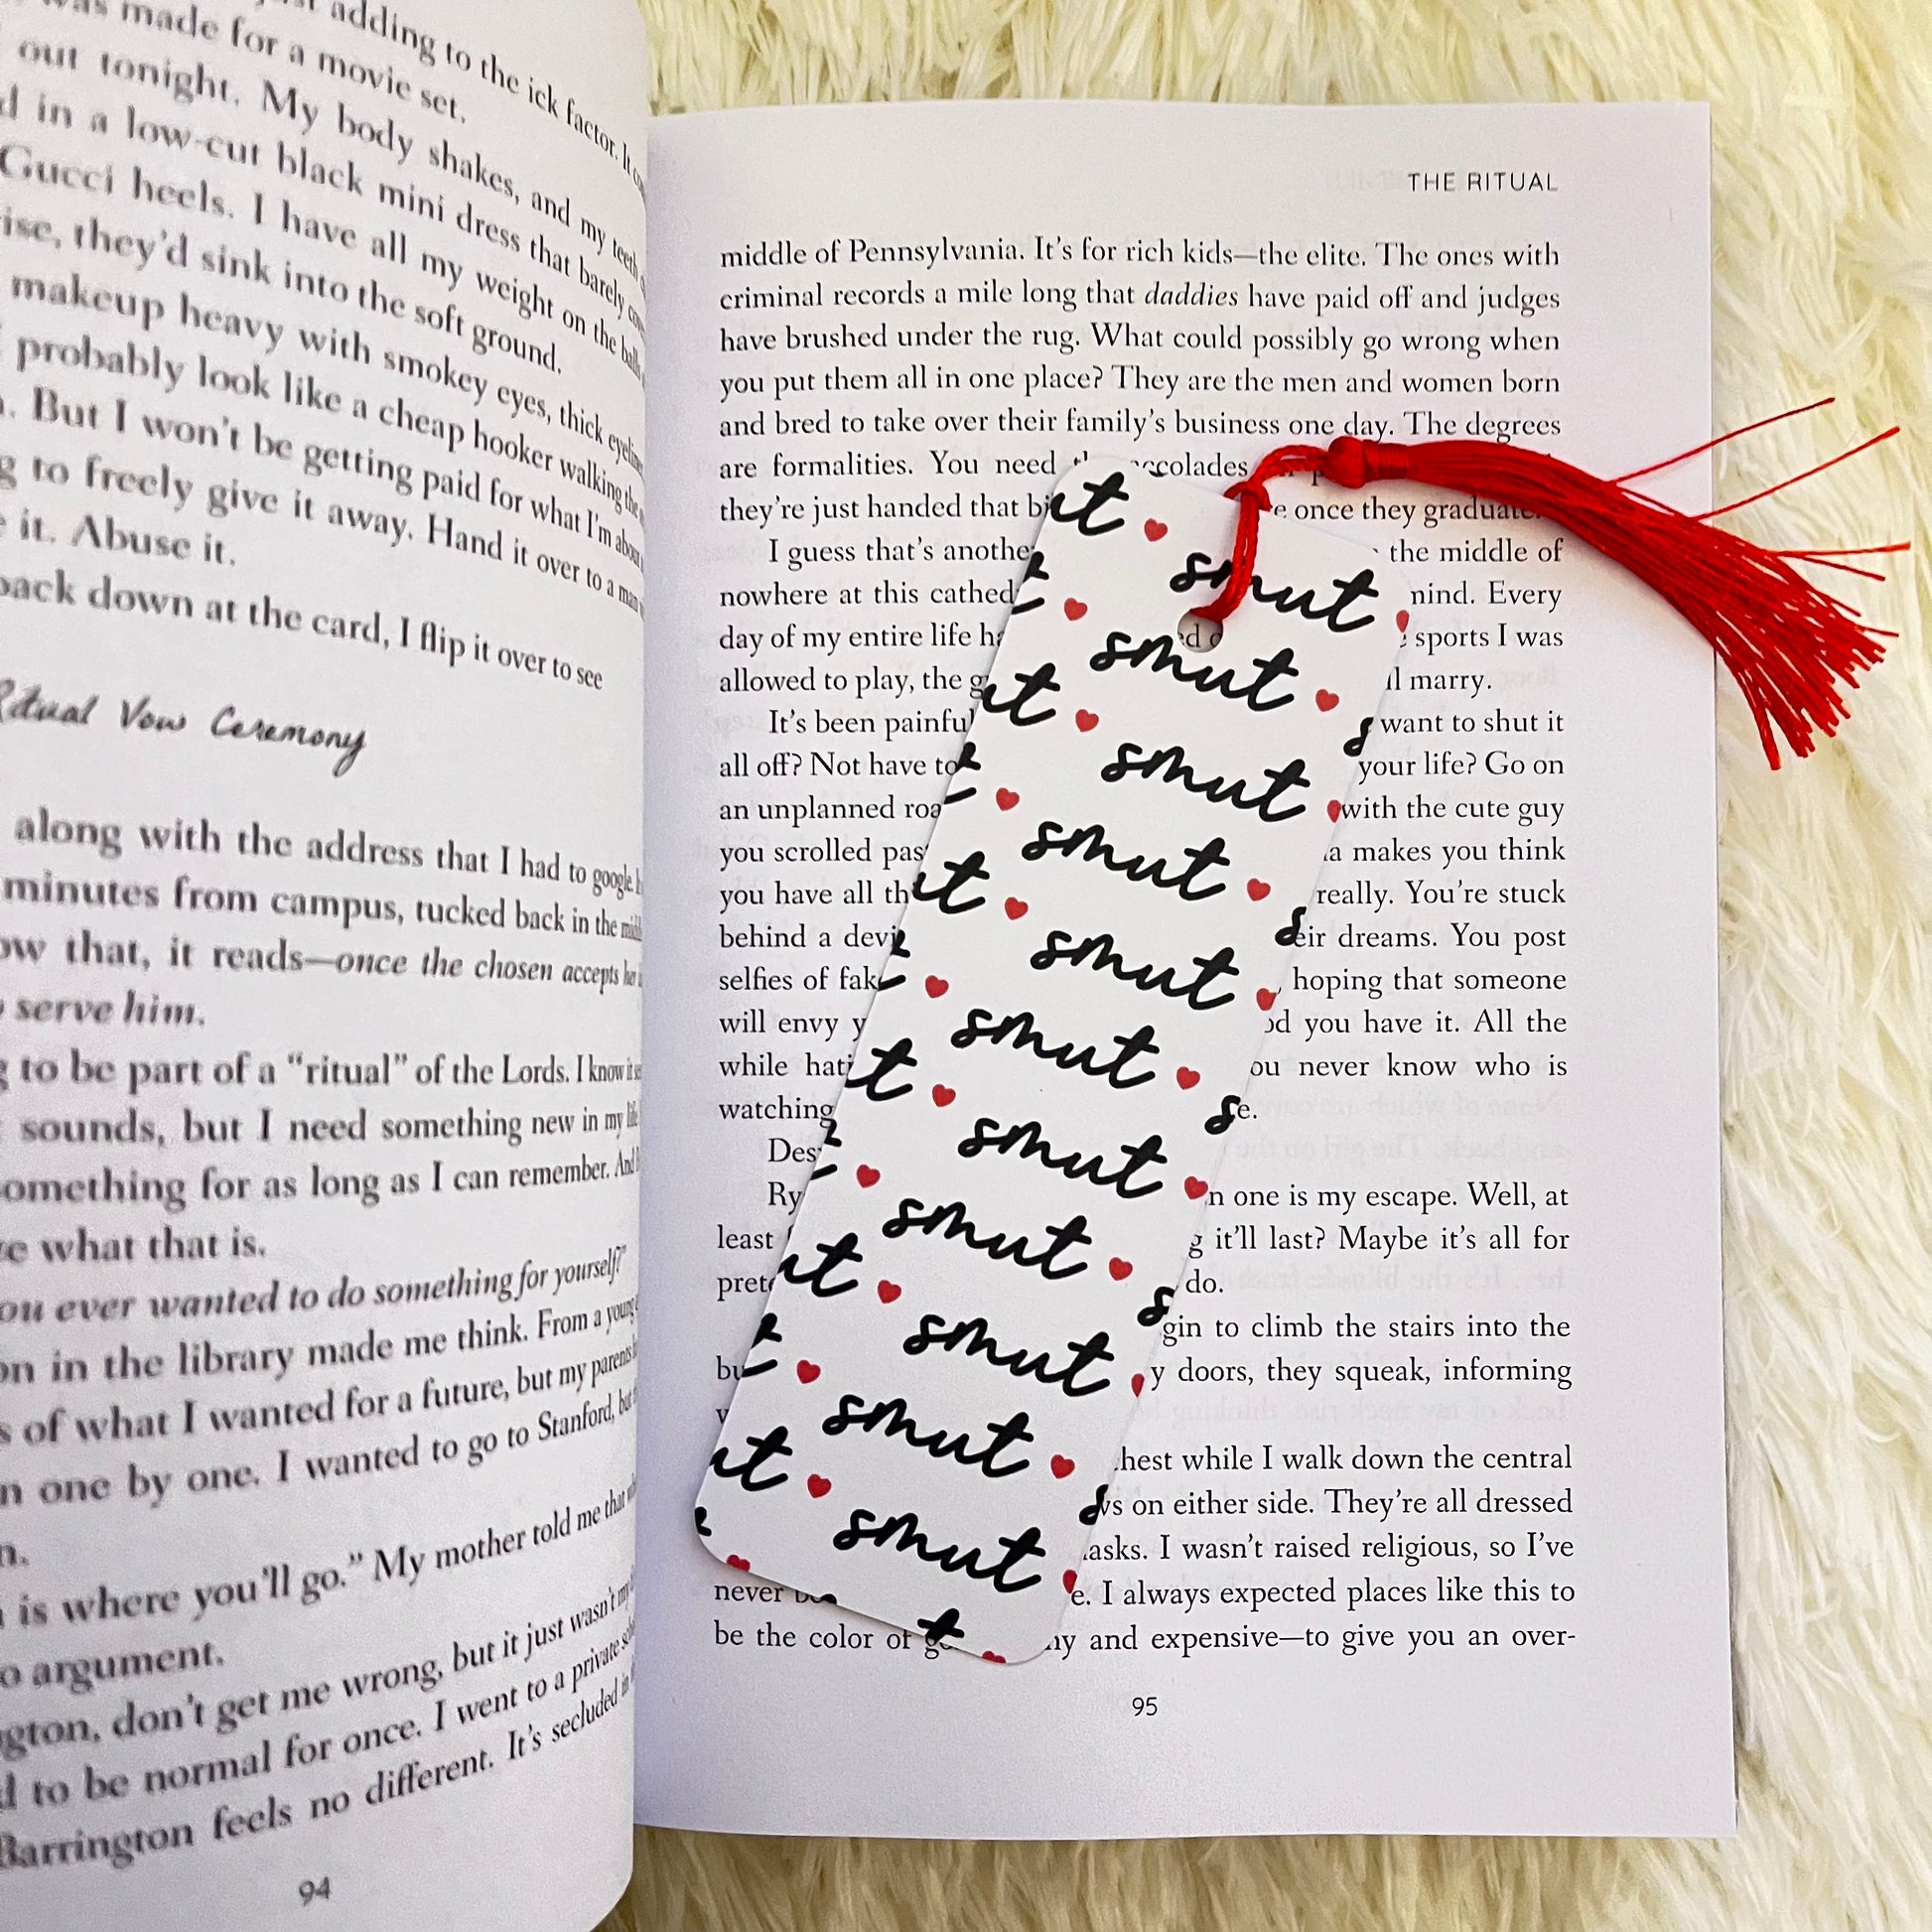 adding to the ick factor. It
was made for a movie set.
out tonight. My body shakes, and my teeth
in a low-cut black mini dress that barely
Gucci heels. I have all my weight on the balls
they'd sink into the soft ground.
makeup heavy with smokey eyes, thick
probably look like a cheap hooker walking the
But I won't be getting paid for what I'm about
to freely give it away. Hand it over to a man
it. Abuse it.
back down at the card, I flip it over to see
Ritual Vow Ceremony
along with the address that I had to google.
minutes from campus, tucked back in the
that, it reads—once the chosen accepts
serve him.
to be part of a “ritual” of the Lords. I know it
sounds, but I need something new in my
something for as long as I can remember. And
what that is.
ever wanted to do something for yourself?”
in the library made me think. From a young
of what I wanted for a future, but my parents
one by one. I wanted to go to Stanford, but
is where you'll go.” My mother told me that
argument.
don't get me wrong, but it just wasn't my
to be normal for once. I went to a private
Barrington feels no different. It's secluded in
94
THE RITUAL
middle of Pennsylvania. It's for rich kids—the elite. The ones with
criminal records a mile long that daddies have paid off and judges
have brushed under the rug. What could possibly go wrong when
you put them all in one place? They are the men and women born
and bred to take over their family's business one day. The degrees
are formalities. You need accolades
they're just handed that once they graduate.
I guess that's another the middle of
nowhere at this mind. Every
day of my entire life sports I was
allowed to play, the marry.
It's been painful want to shut it
all off? Not have to your life? Go on
an unplanned with the cute guy
you scrolled makes you think
you have all really. You're stuck
behind a their dreams. You post
selfies of hoping that someone
will envy you have it. All the
while never know who is
watching
one is my escape. Well, at
least it'll last? Maybe it's all for
do.
to climb the stairs into the
doors, they squeak, informing
while I walk down the central
on either side. They're all dressed
I wasn't raised religious, so I've
never I always expected places like this to
be the color of and expensive—to give you an over-
95
smut
smut
smut
smut
smut
smut
smut
smut
smut
smut
smut